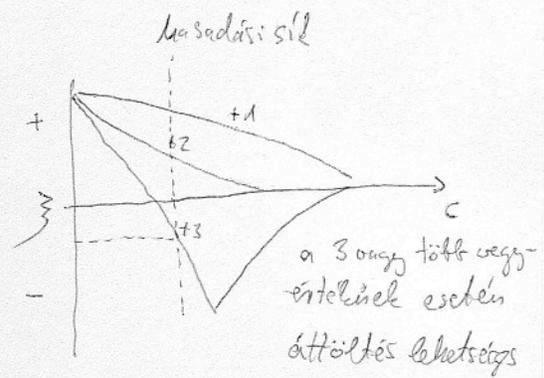 hasadási sík
+
+1
+2
ξ
+3
c
-
a 3 vagy több vegy-
értékűek esetén
áttöltés lehetséges